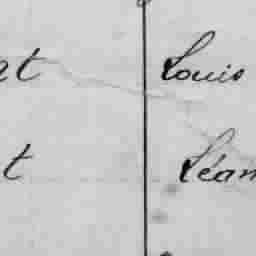 t Louis
t Léan